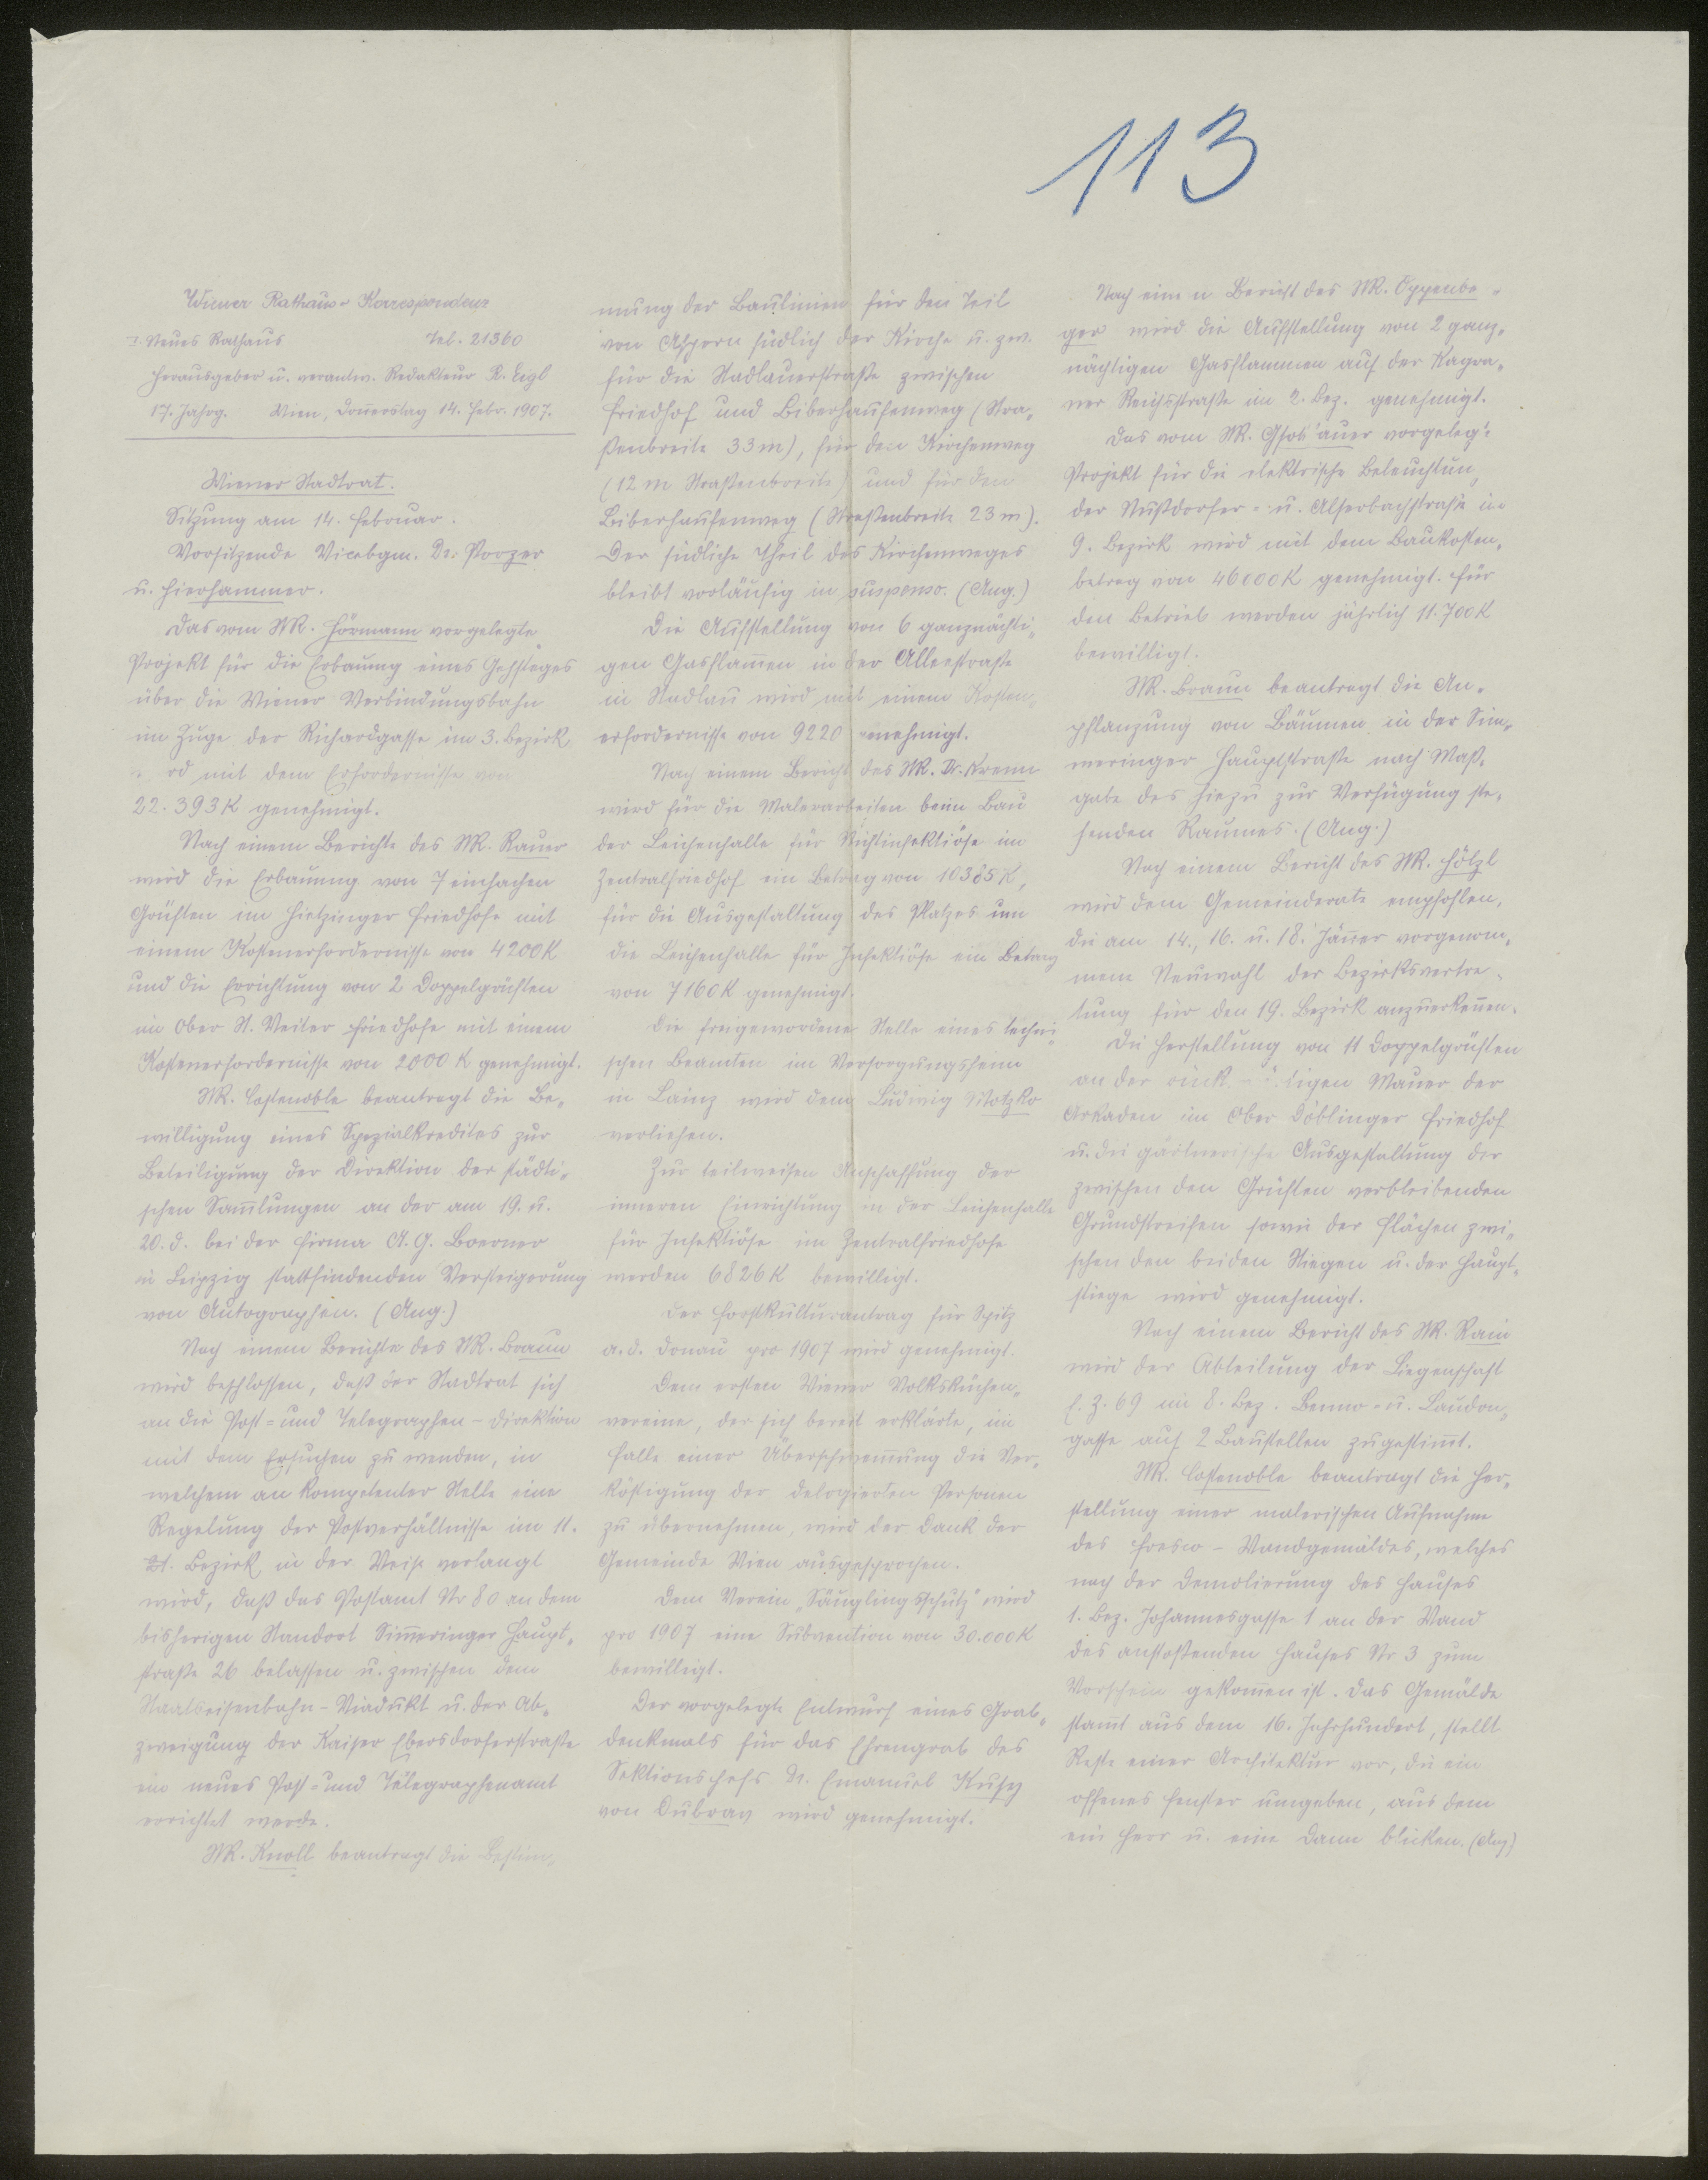 113
Wiener Rathaus-Korrespondenz
I. Neues Rathaus Tel. 21360
Herausgeber u. verantw. Redakteur R. Eigl
17. Jahrg. Wien, Donnerstag 14. Febr. 1907.
Wiener Stadtrat.
Sitzung am 14. Februar.
Vorsitzende Vicebgm. Dr. Porzer
u. Hierhammer.
Das vom StR. Hörmann vorgelegte
Projekt für die Erbauung eines Gehsteges
über die Wiener Verbindungsbahn
im Zuge der Richardgasse im 3. Bezirk
rd mit dem Erfordernisse von
22.393K genehmigt.
Nach einem Berichte des StR. Rauer
wird die Erbauung von 7 einfachen
Grüften im Hietzinger Friedhofe mit
einem Kostenerfordernisse von 4200K
und die Errichtung von 2 Doppelgrüften
im Ober St. Veiter Friedhofe mit einem
Kostenerfordernisse von 2000 K genehmigt.
StR. Costenoble beantragt die Be-
willigung eines Spezialkredites zur
Beteiligung der Direktion der städti-
schen Samlungen an der am 19. u.
20. d. bei der Firma C. G. Boerner
in Leipzig stattfindenden Versteigerung
von Autographen. (Ang.)
Nach einem Berichte des StR. Braun
wird beschlossen, daß der Stadtrat sich
an die Post- und Telegraphen-Direktion
mit dem Ersuchen zu wenden, in
welchem an kompetenter Stelle eine
Regelung der Postverhältnisse im 11.
21. Bezirk in der Weise verlangt
wird, daß das Postamt Nr 80 an dem
bisherigen Standort Simmeringer Haupt-
straße 26 belassen u. zwischen dem
Staatseisenbahn-Viadukt u. der Ab-
zweigung der Kaiser Ebersdorferstraße
ein neues Post- und Telegraphenamt
errichtet werde.
StR. Knoll beantragt die Bestim-
mung der Baulinien für den Teil
von Aspern südlich der Kirche u. zw.
für die Stadlauerstraße zwischen
Friedhof und Biberhaufenweg (Stra-
ßenbreite 33m), für den Kirchenweg
(12 m Straßenbreite) und für den
Biberhaufenweg (Straßenbreite 23 m).
Der südliche Theil des Kirchenweges
bleibt vorläufig in suspenso. (Ang.)
Die Aufstellung von 6 ganznächti-
gen Gasflammen in der Alleestraße
in Stadlau wird mit einem Kosten-
erfordernisse von 9220 genehmigt.
Nach einem Bericht des StR. Dr. Krenn
wird für die Malerarbeiten beim Bau
der Leichenhalle für Nichtinfektiöse im
Zentralfriedhof ein Betrag von 10385K,
für die Ausgestaltung des Platzes um
die Leichenhalle für Infektiöse ein Betrag
von 7160K genehmigt.
Die freigewordene Stelle eines techni-
schen Beamten im Versorgungsheim
in Lainz wird dem Ludwig Motzko
verliehen.
Zur teilweisen Anschaffung der
inneren Einrichtung in der Leichenhalle
für Infektiöse im Zentralfriedhofe
werden 6826K bewilligt.
Der Forstkulturantrag für Spitz
a. d. Donau pro 1907 wird genehmigt.
Dem ersten Wiener Volksküchen-
vereine, der sich bereit erklärte, im
Falle einer Überschwemmung die Ver-
köstigung der delogierten Personen
zu übernehmen, wird der Dank der
Gemeinde Wien ausgesprochen.
Dem Verein "Säuglingsschutz" wird
pro 1907 eine Subvention von 30.000K
bewilligt.
Der vorgelegte Entwurf eines Grab-
denkmals für das Ehrengrab des
Sektionschefs Dr. Emanuel Kusy
von Dubrav wird genehmigt.
Nach einem Bericht des StR. Oppenbe-
ger wird die Aufstellung von 2 ganz-
nächtigen Gasflammen auf der Kagra-
ner Reichsstraße im 2. Bez. genehmigt.
Das vom StR. Gsottbauer vorgelegte
Projekt für die elektrische Beleuchtung
der Nußdorfer- u. Alserbachstraße im
9. Bezirk wird mit dem Baukosten-
betrag von 46000K genehmigt. Für
den Betrieb werden jährlich 11.700K
bewilligt.
StR. Braun beantragt die An-
pflanzung von Bäumen in der Sim-
meringer Hauptstraße nach Maß-
gabe des hiezu zur Verfügung ste-
henden Raumes. (Ang.)
Nach einem Bericht des StR. Hölzl
wird dem Gemeinderate empfohlen,
die am 14., 16. u. 18. Jänner vorgenom-
mene Neuwahl der Bezirksvertre-
tung für den 19. Bezirk anzuerkennen.
Die Herstellung von 11 Doppelgrüften
an der rück- igen Mauer der
Arkaden im Ober Döblinger Friedhof
u. die gärtnerische Ausgestaltung der
zwischen den Grüften verbleibenden
Grundstreifen sowie der Flächen zwi-
schen den beiden Stiegen u. der Haupt-
stiege wird genehmigt.
Nach einem Bericht des StR. Rain
wird der Abteilung der Liegenschaft
E. Z. 69 im 8. Bez. Benno- u. Laudon-
gasse auf 2 Baustellen zugestimmt.
StR. Costenoble beantragt die Her-
stellung einer malerischen Aufnahme
des Fresco-Wandgemäldes, welches
nach der Demolierung des Hauses
1. Bez. Johannesgasse 1 an der Wand
des anstoßenden Hauses Nr 3 zum
Vorschein gekommen ist. Das Gemälde
stammt aus dem 16. Jahrhundert, stellt
Reste einer Architektur vor, die ein
offenes Fenster umgeben, aus dem
ein Herr u. eine Dame blicken. (Ang)